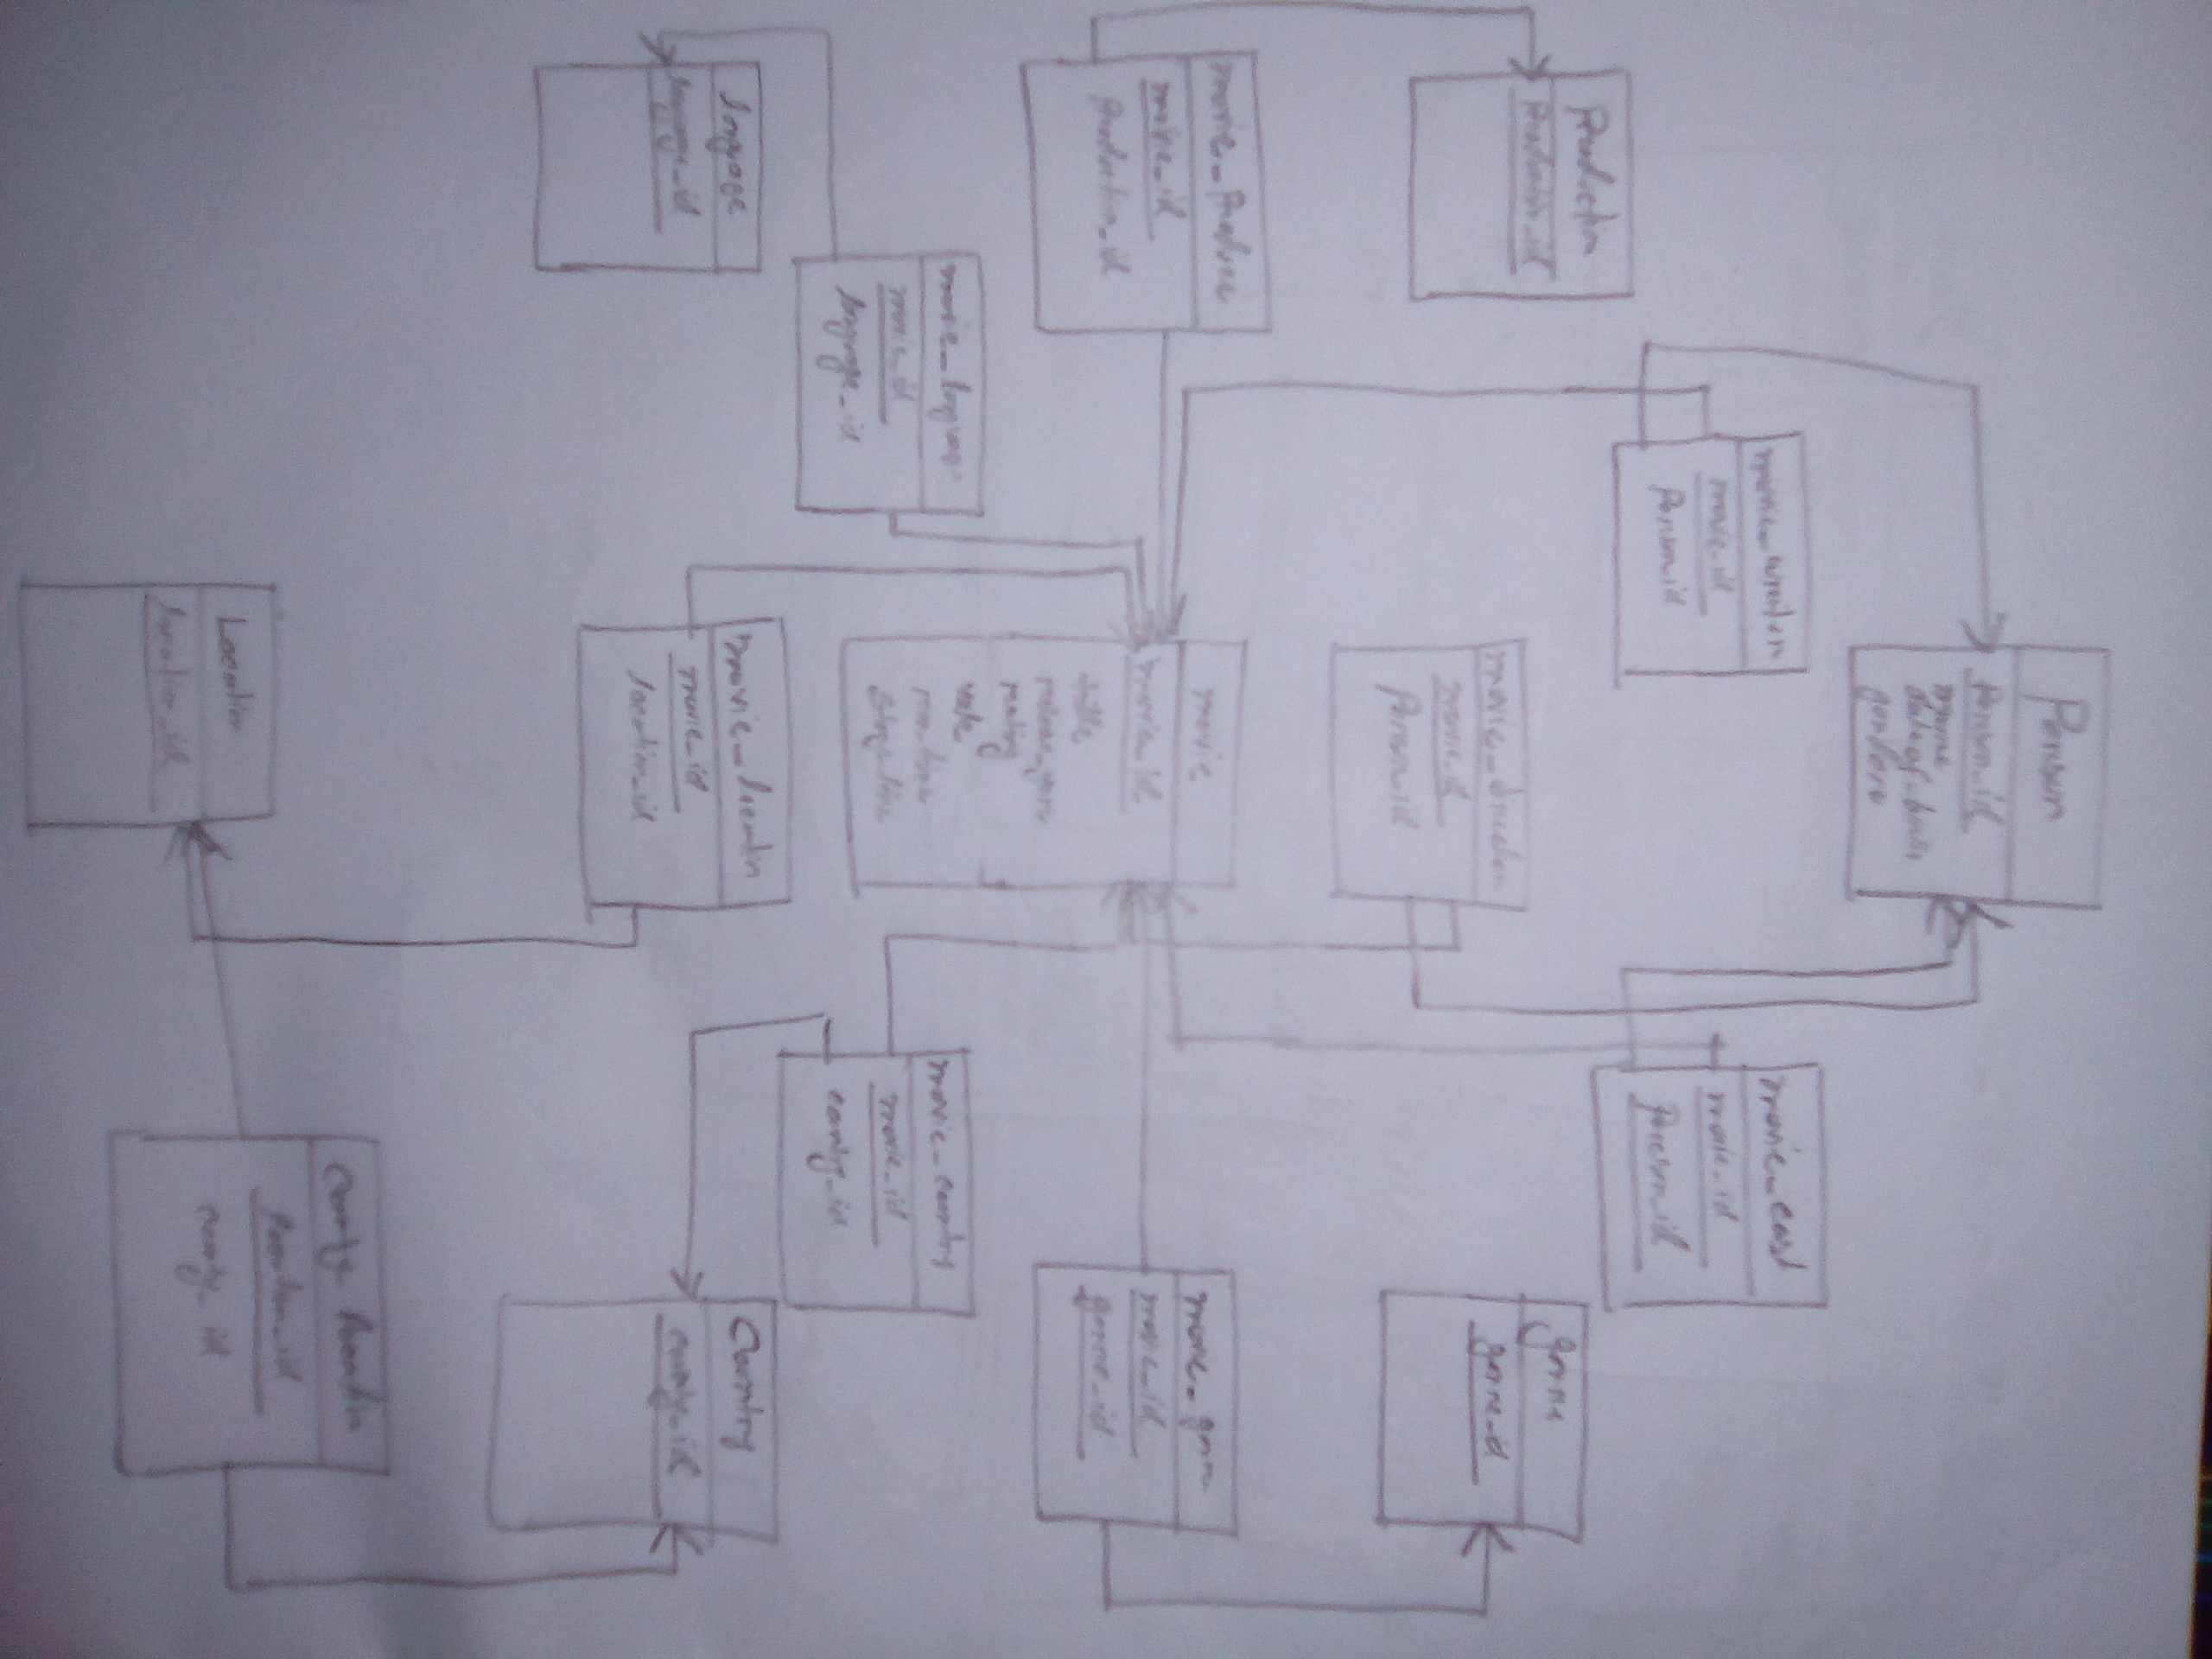 Person
Person_id
name
dateof_birth
gender
movie_writer
movie_id
Person_id
movie_cast
movie_id
Person_id
Production
Production_id
genre
genre_id
movie_director
movie_id
Person_id
movie_Produce
movie_id
Production_id
movie
movie_id
title
release_year
rating
vote
run_time
Story_line
movie_genre
movie_id
genre_id
movie_language
movie_id
language_id
movie_country
movie_id
country_id
language
language_id
movie_location
movie_id
location_id
Country
country_id
County_location
location_id
county_id
Location
location_id